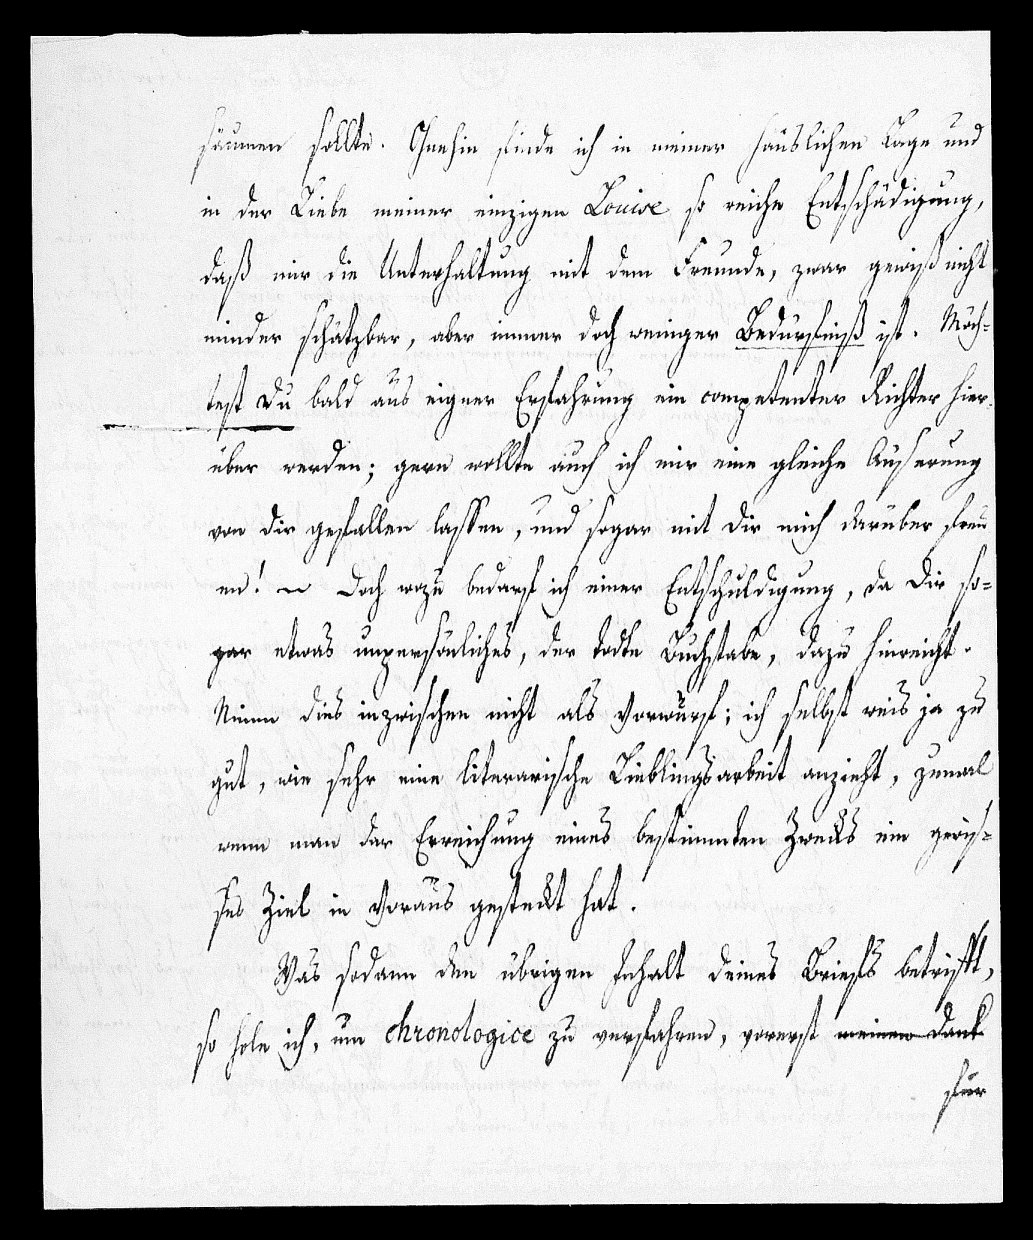 säumen sollte. Ohnehin finde ich in meiner häuslichen Lage und
in der Liebe meiner einzigen Louise so reiche Entschädigung,
daß mir die Unterhaltung mit dem Freunde, zwar gewiß nicht
minder schätzbar, aber immer doch weniger Bedürfniß ist. Möch-
test Du bald aus eigner Erfahrung ein competenter Richter hier-
über werden; gern wollte auch ich mir eine gleiche Äußerung
von dir gefallen lassen, und sogar mit Dir mich darüber freu
en! ~ Doch wozu bedarf ich einer Entschuldigung, da Dir so-
gar etwas unpersönliches, der todte Buchstabe, dazu hinreicht.
Nimm dies inzwischen nicht als Vorwurf; ich selbst weis ja zu
gut, wie sehr eine literarische Lieblingsarbeit anzieht, zumal
wenn man der Erreichung eines bestimmten Zwecks ein gewis-
ses Ziel in Voraus gesteckt hat.
Was sodann den übrigen Inhalt deines Briefs betrifft,
so hole ich, um chronologice zu verfahren, vorerst meinen Dank
für